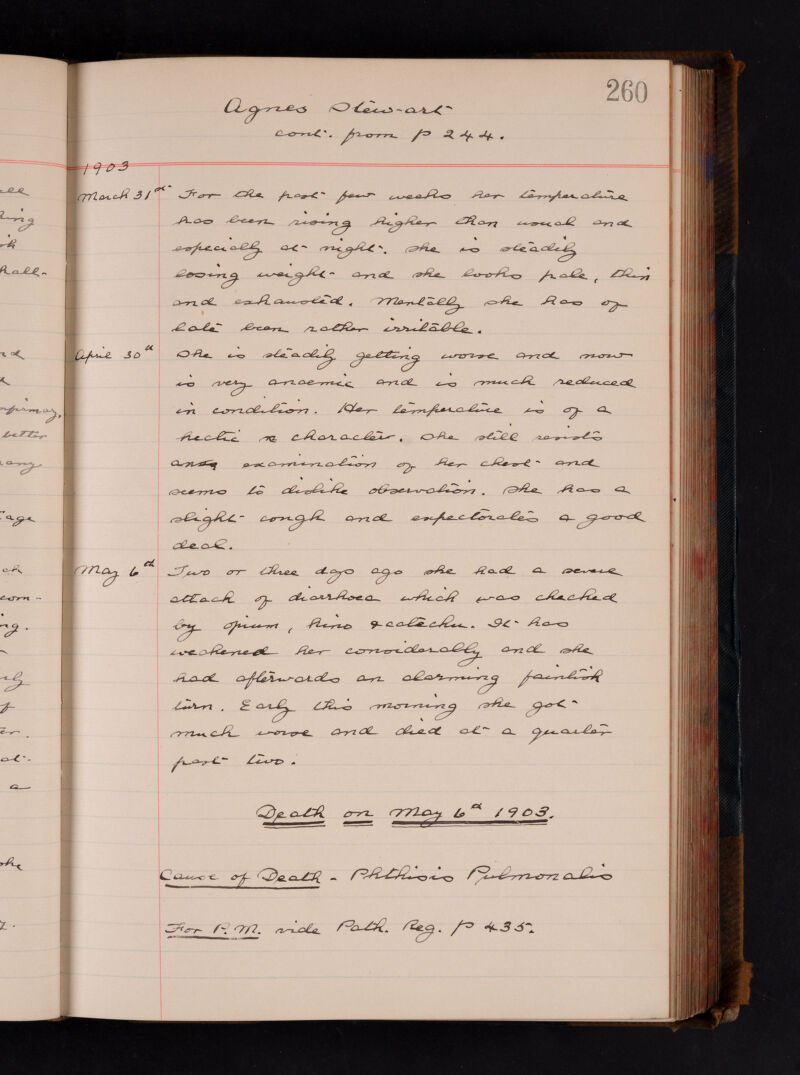 260
Agnes Stewart
cont. from p 244.
1903
March 31st For the past few weeks her temperature
has been rising higher than usual and
especially at night. She is steadily
losing weight and she looks pale, thin
and exhausted. Mentally she has of
late been rather irritable.
April 30th She is steadily getting worse and now
is very anaemic and is much reduced
in condition. Her temperature is of a
hectic character. She still resists
any examination of her chest and
seems to dislike observation. She has a
slight cough and expectorates a good
deal.
May 6th Two or three days ago she had a severe
attack of diarrhoea which was checked
by opium, kino & catechu. It has
weakened her considerably and she
had afterwards an alarming faintish
turn. Early this morning she got
much worse and died at a quarter
past two.
Death on May 6th 1903.
Cause of Death - Phthisis Pulmonalis
For P.M. vide Path. Reg. p 435.